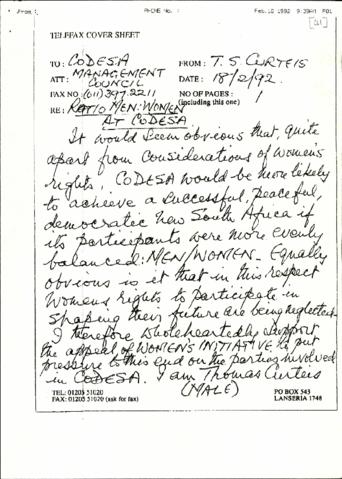 From :
PHONE No. :
Feb. 18 1992 9:39AM P01
TELEFAX COVER SHEET
TO : CODESA FROM : T. S. CURTEIS
ATT : MANAGEMENT COUNCIL DATE : 18/2/92.
FAX NO : (011) 397.2211 NO OF PAGES : 1
(including this one)
RE : RATIO MEN: WOMEN
AT CODESA
It would seem obvious that, quite
apart from considerations of women's
rights, CODESA would be more likely
to achieve a successful, peaceful,
democratic new South Africa if
its participants were more evenly
balanced: MEN/WOMEN. Equally
obvious is it that in this respect
Womens rights to participate in
shaping their future are being neglected.
I therefore wholeheartedly support
the appeal of WOMEN'S INITIATIVE to put
pressure to this end on the parties involved
in CODESA. I am Thomas Curteis
(MALE)
TEL: 01205 51020
FAX: 01205 51020 (ask for fax)
PO BOX 543
LANSERIA 1748